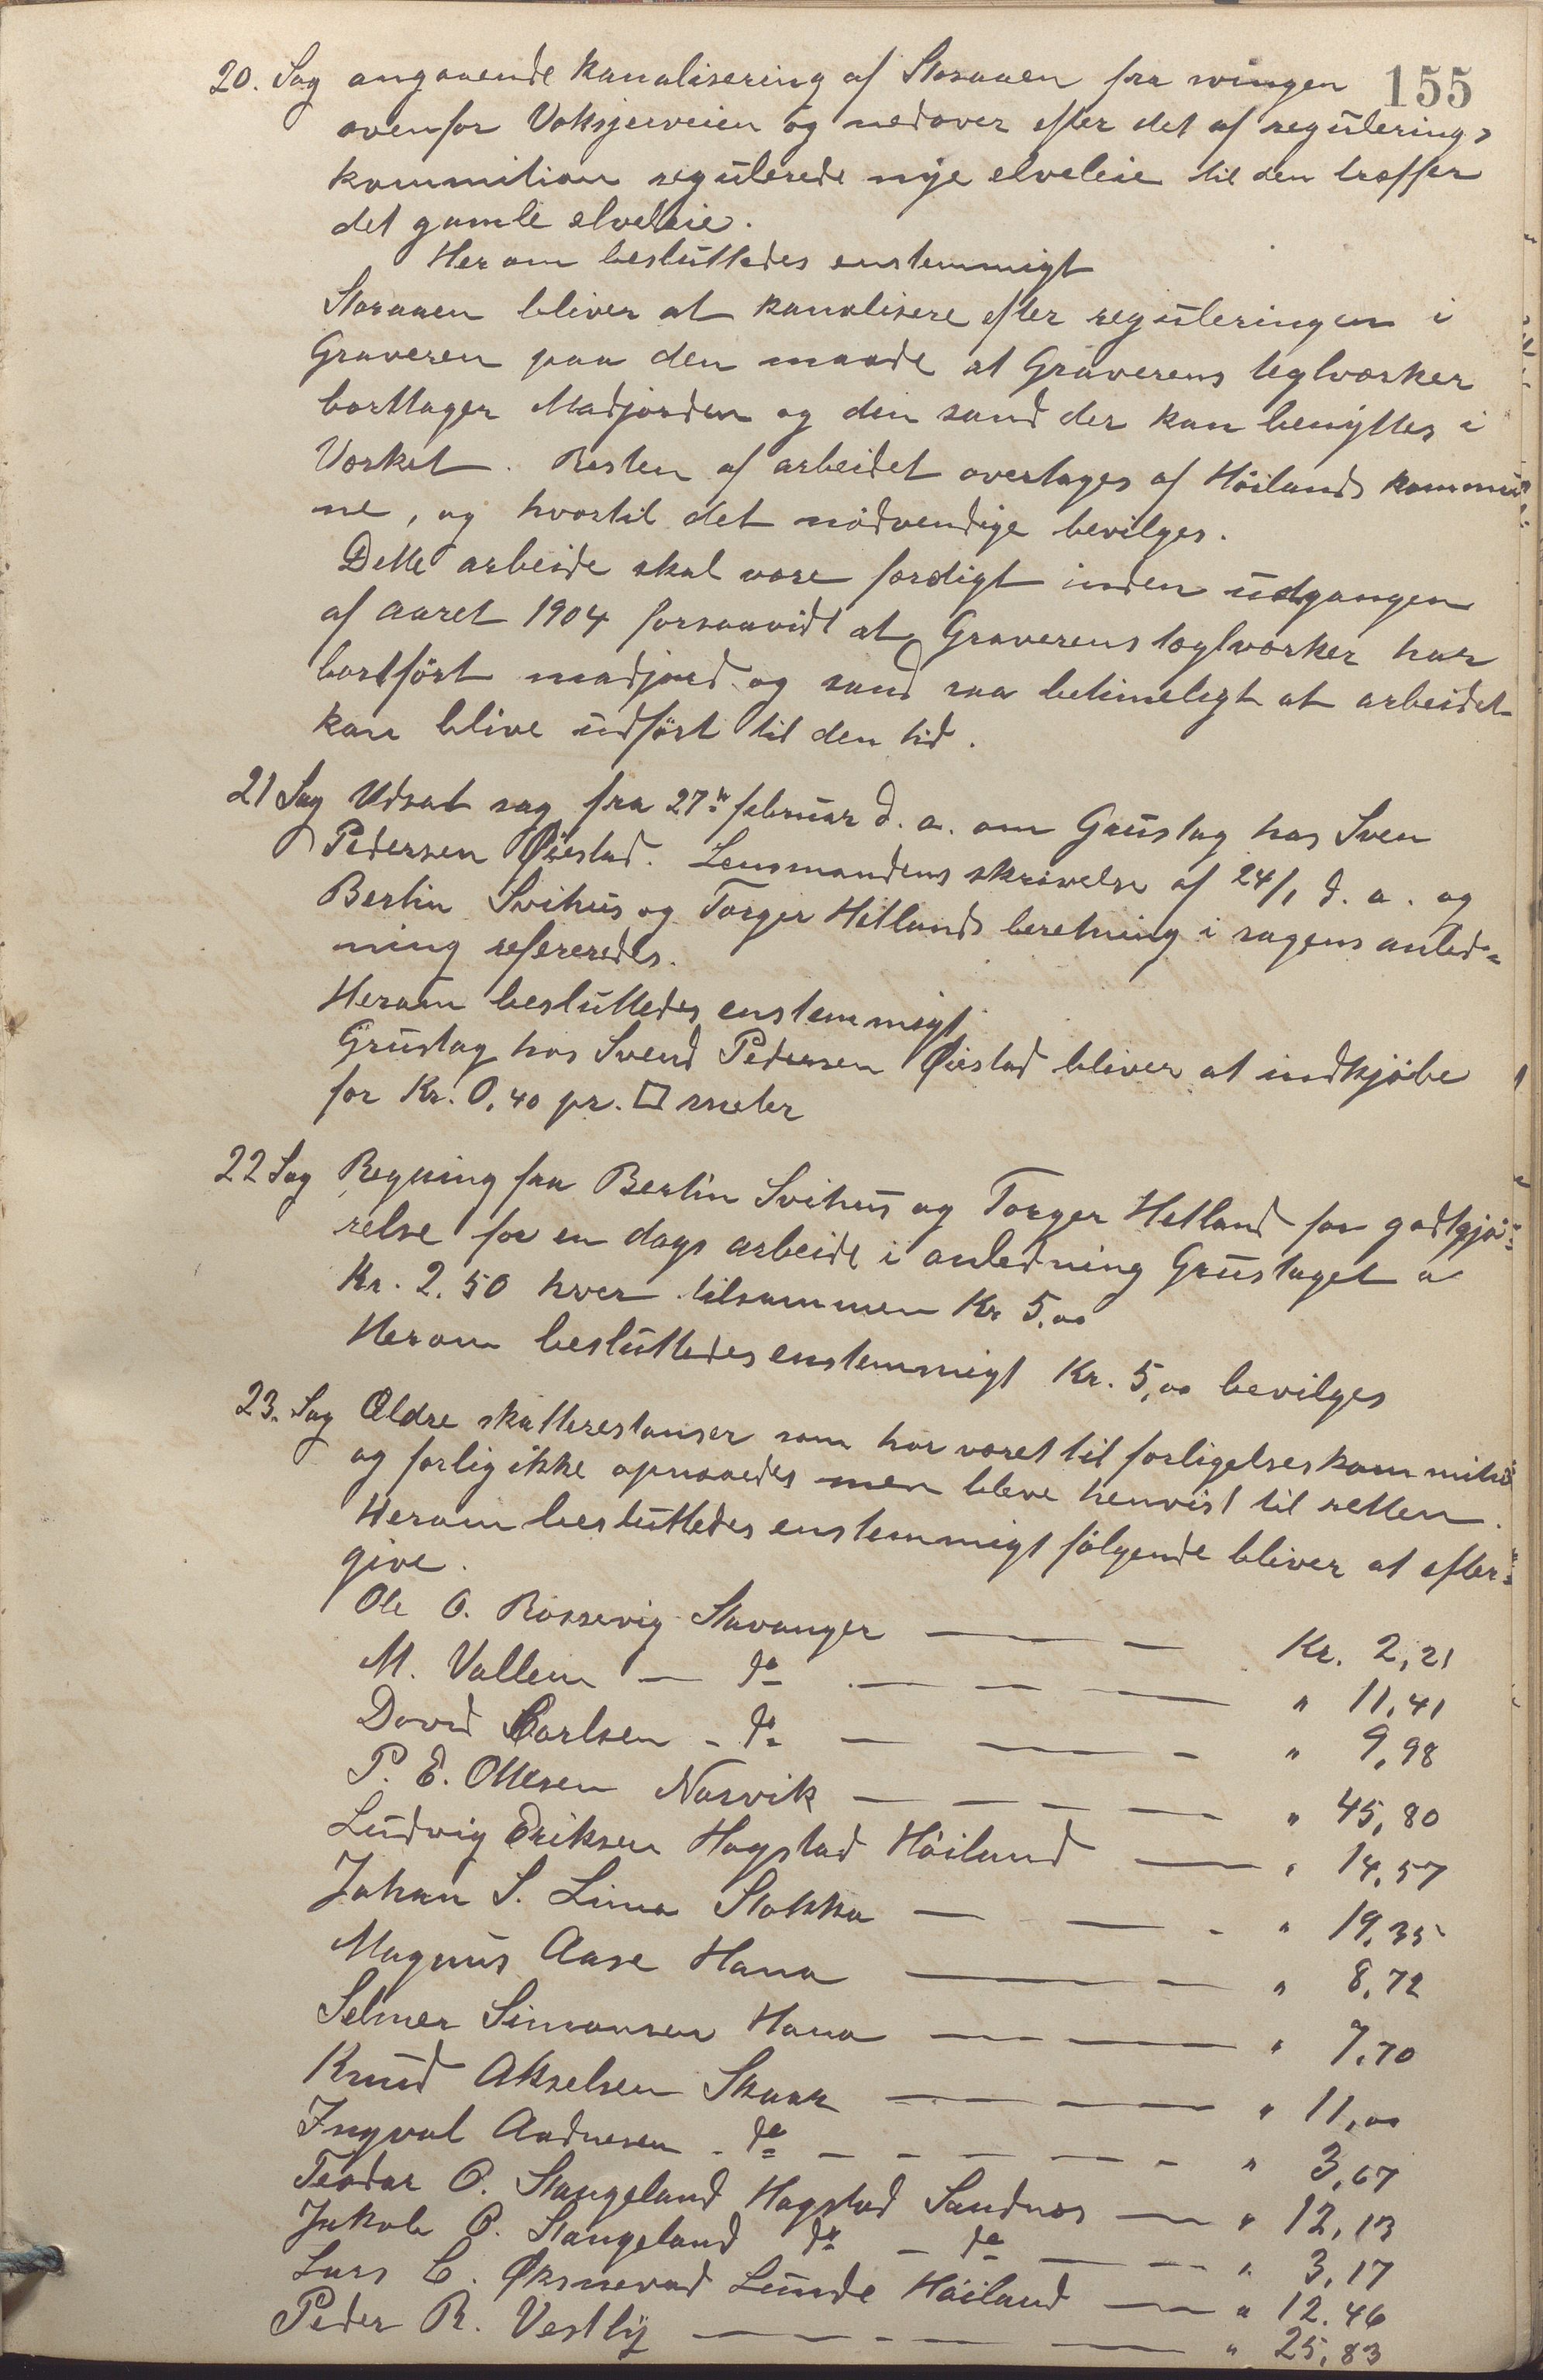 155
20. Sag angaaende kanalisering af Storaaen fra svingen
ovenfor Voksjerveien og nedover efter det af regulerings
kommition regulerede nye elveleie til den træffer
det gamle elveleie.
Her om besluttedes enstemmigt
Storaaen bliver at kanalisere efter reguleringen i
Graveren paa den maade at Graverens teglværker
borttager Madjorden og den sand der kan benyttes i
Værket. Resten af arbeidet overtages af Höilands kommu
ne, og hvortil det nödvendige bevilges.
Dette arbeide skal være færdigt inden udgangen
af aaret 1904 forsaavidt at Graverens teglværker har
bortfört madjord og sand saa betimeligt at arbeidet
kan blive udfört til den tid.
21 Sag Udsat sag fra 27de februar d. a. om Grustag hos Sven
Pedersen Øiestad. Lensmandens skrivelse af 24/1 d. a. og
Bertin Svihus og Torger Hetlands beretning i sagens anled-
ning refereredes.
Herom besluttedes enstemmigt
Grustag hos Svend Pedersen Øiestad bliver at indkjöbe
for Kr. 0,40 pr. □ meter
22 Sag Regning fra Bertin Svihus og Torger Hetland for godtgjö-
relse for en dags arbeide i anledning Grustaget a
Kr. 2.50 hver tilsammen Kr 5,00
Herom besluttedes enstemmigt Kr. 5,00 bevilges
23. Sag Ældre skatterestanser som har været til forligelseskommition
og forlig ikke opnaaedes men bleve henvist til retten.
Herom besluttedes enstemmigt fölgende bliver at efter-
give.
Ole O. Rossevig Stavanger — — Kr. 2,21
M. Vallem — do — — — " 11,41
David Carlsen - do — — - " 9,98
P. E. Ottesen Narvik — — — — — " 45,80
Ludvig Eriksen Hogstad Höiland — " 14,57
Johan S. Lima Stokka — — - " 19,35
Magnus Aase Hana — — " 8,72
Selmer Simonsen Hana — — " 7,70
Knud Akselsen Skaar — — — " 11,00
Ingval Andresen - do — — — — - " 3,67
Teodor O. Stangeland Hogstad Sandnæs — " 12,13
Jakob O. Stangeland do — do — — " 3,17
Lars C. Øksnevad Lunde Höiland — " 12.46
Peder R. Vestly — - — — " 25,83